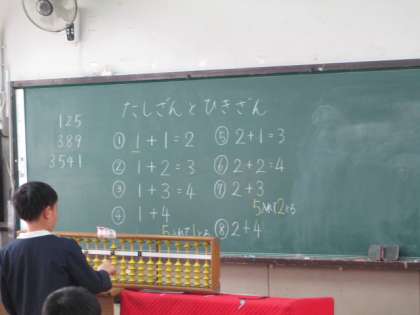 たしざんとひきざん
125
389
3541
① 1+1=2
② 1+2=3
③ 1+3=4
④ 1+4
5入れて1とる
⑤ 2+1=3
⑥ 2+2=4
⑦ 2+3
5入れて2とる
⑧ 2+4